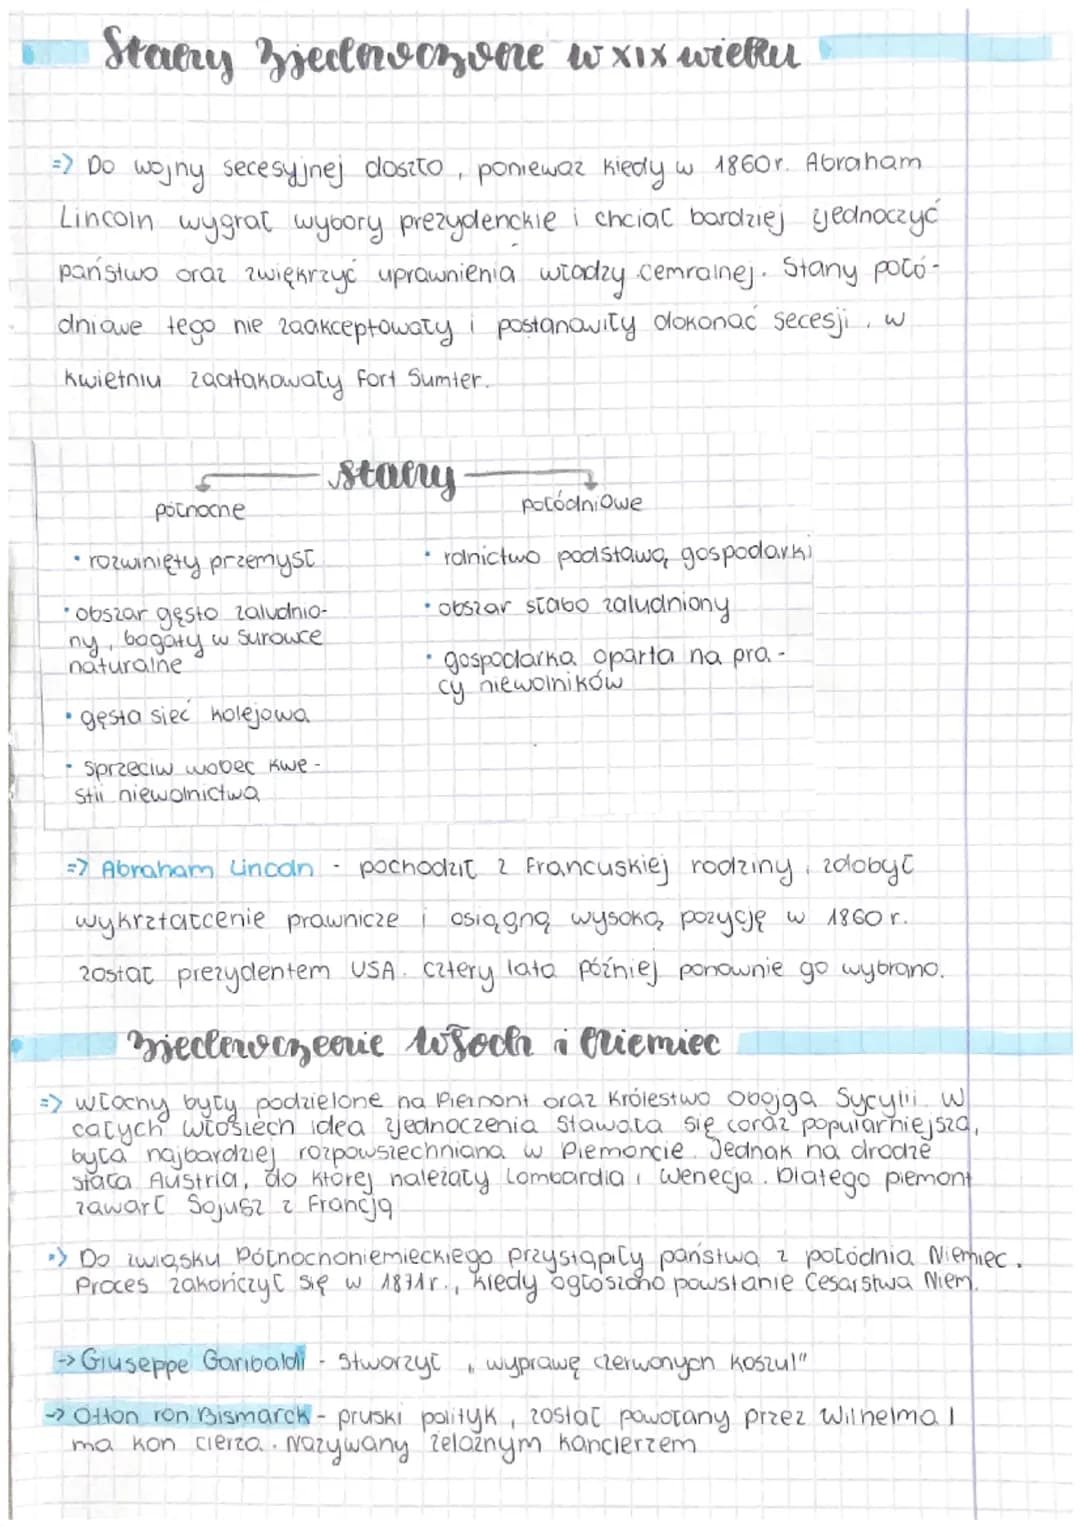 Stany Zjednoczone w XIX wieku
=> Do wojny secesyjnej doszło, ponieważ kiedy w 1860r. Abraham
Lincoln wygrał wybory prezydenckie i chciał bardziej zjednoczyć
państwo oraz zwiękrzyć uprawnienia władzy cemralnej. Stany połó-
dniowe tego nie zaakceptowały i postanowiły dokonać secesji, w
kwietniu zaatakowały Fort Sumter.
stany
północne
połódniowe
• rozwinięty przemysł
• obszar gęsto zaludnio-
ny, bogaty w surowce
naturalne
• gęsta sieć kolejowa
• sprzeciw wobec kwe-
stii niewolnictwa
• rolnictwo podstawą gospodarki
• obszar słabo zaludniony
• gospodarka oparta na pra-
cy niewolników
=> Abraham Lincoln - pochodził z Francuskiej rodziny, zdobył
wykrztałcenie prawnicze i osiągną wysoką pozycję w 1860 r.
został prezydentem USA. Cztery lata później ponownie go wybrano.
Zjednoczenie Włoch i Niemiec
=> Włochy były podzielone na Piemont oraz Królestwo Obojga Sycylii. W
całych Włoszech idea zjednoczenia stawała się coraz popularniejsza,
była najbardziej rozpowszechniana w Piemoncie. Jednak na drodze
stała Austria, do której należały Lombardia i Wenecja. Dlatego piemont
zawarł Sojusz z Francją
=> Do związku Północnoniemieckiego przystąpiły państwa z połódnia Niemiec.
Proces zakończył się w 1871r., kiedy ogłoszono powstanie Cesarstwa Niem.
-> Giuseppe Garibaldi - stworzył „wyprawę czerwonych koszul"
-> Otton von Bismarck - pruski polityk, został powołany przez Wilhelma I
ma kon cierza. Nazywany żelaznym kanclerzem